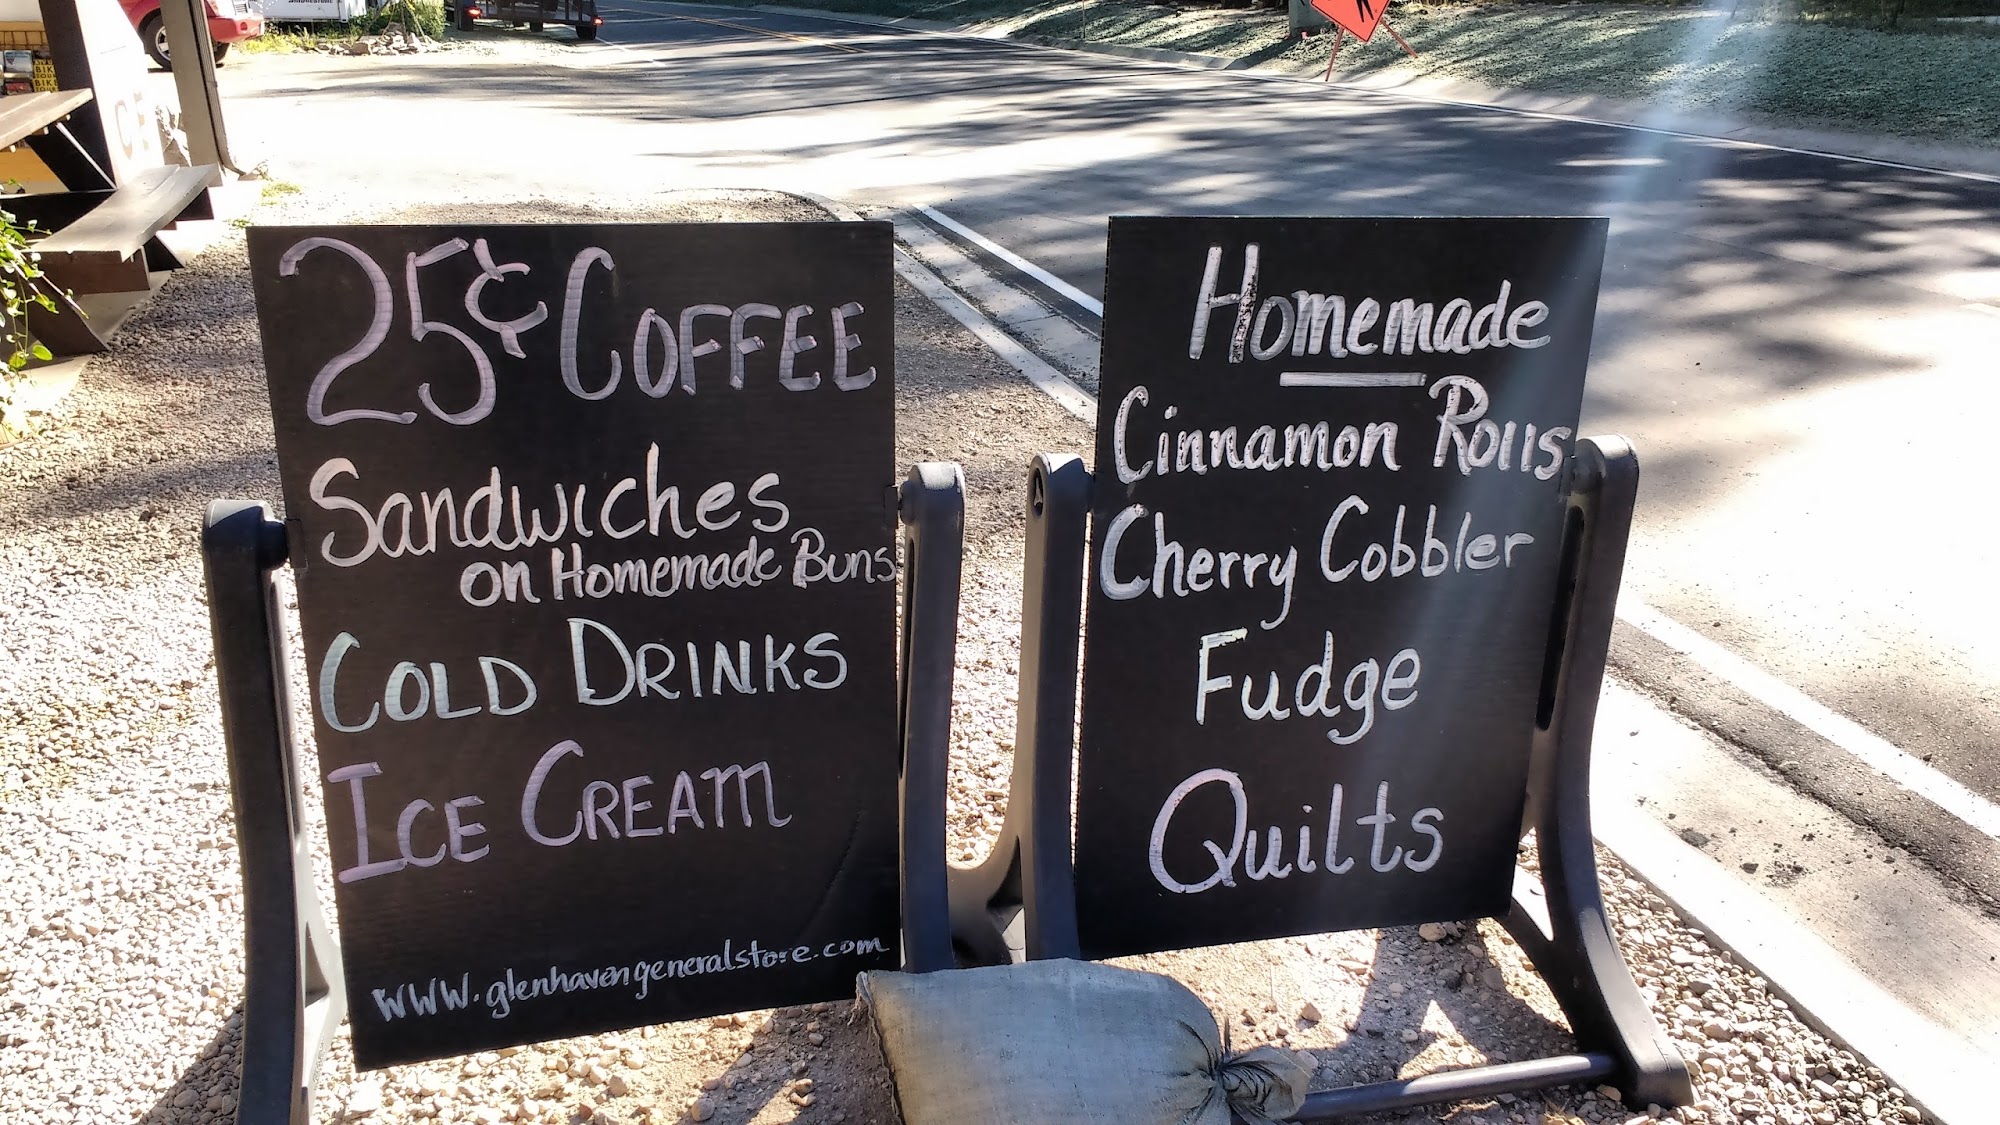 25¢ COFFEE
Sandwiches
on Homemade Buns
COLD DRINKS
ICE CREAM
www.glenhavengeneralstore.com
Homemade
Cinnamon Rolls
Cherry Cobbler
Fudge
Quilts